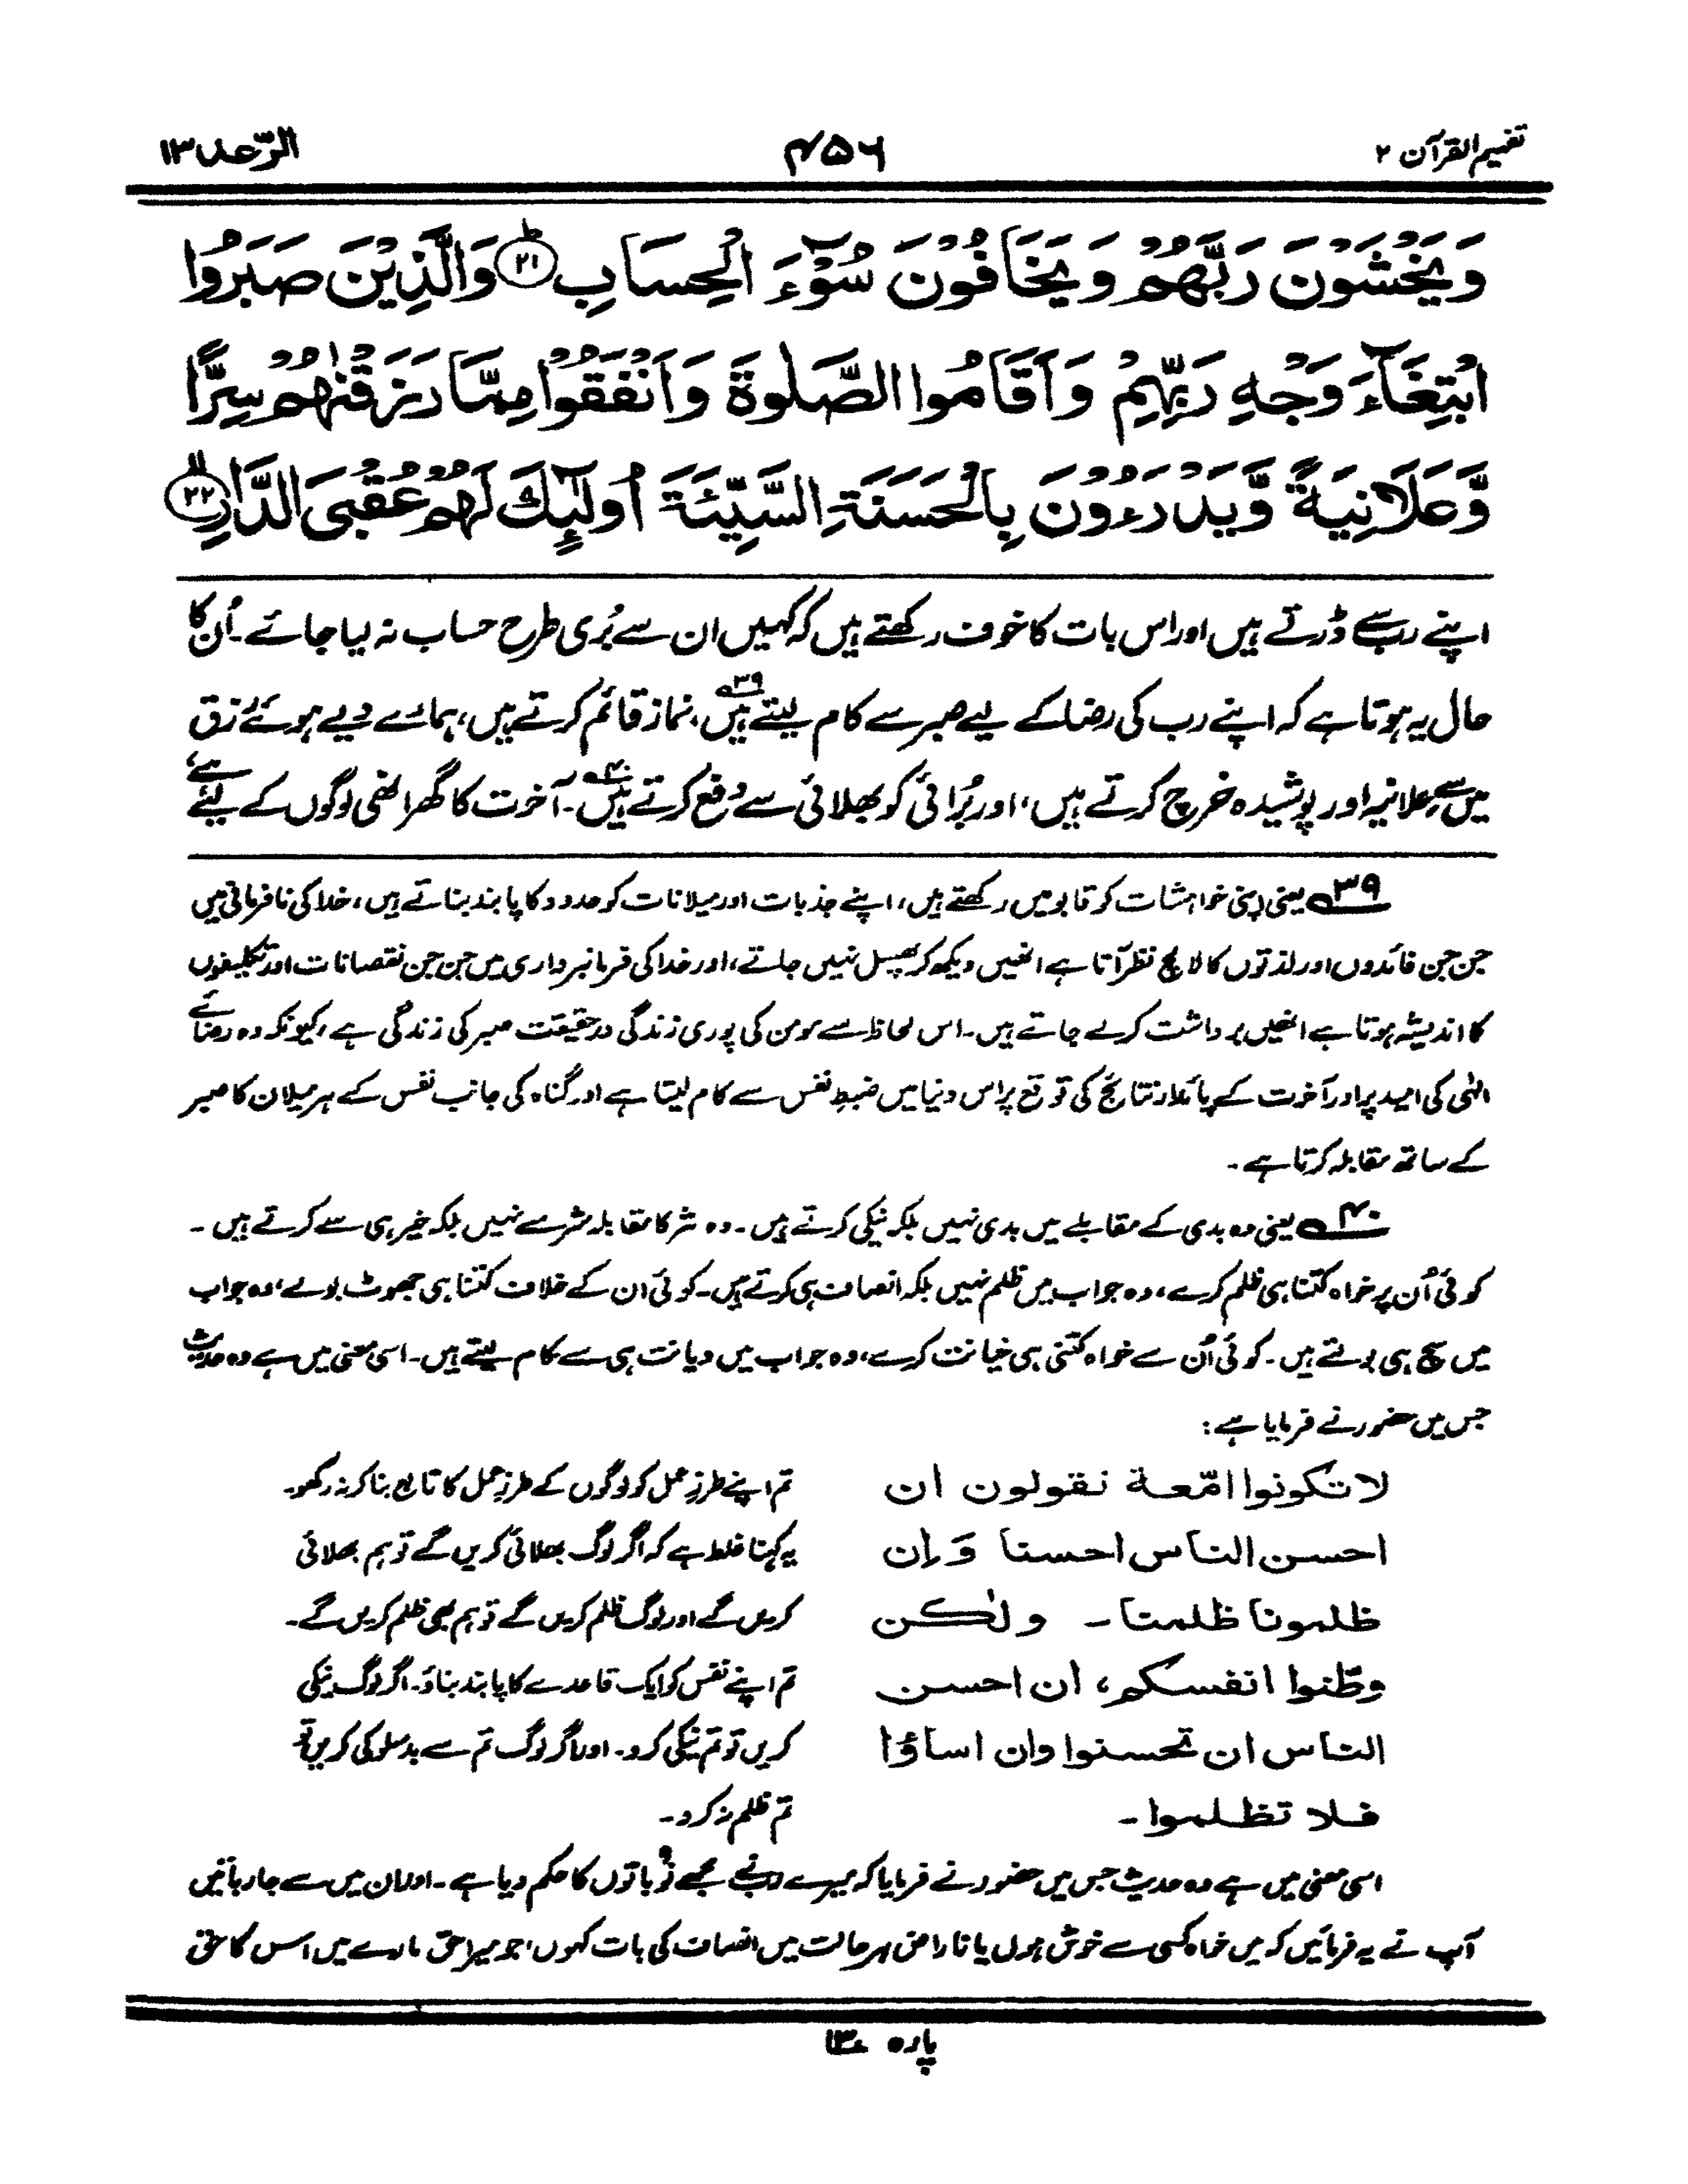 تفہیم القرآن ۲
۴۵۶
الرّعد ۱۳
وَيَخْشَوْنَ رَبَّهُمْ وَيَخَافُوْنَ سُوْٓءَ الْحِسَابِ ؕ﴿۲۱﴾ وَالَّذِيْنَ صَبَرُوا
ابْتِغَآءَ وَجْهِ رَبِّهِمْ وَاَقَامُوا الصَّلٰوةَ وَاَنْفَقُوْا مِمَّا رَزَقْنٰهُمْ سِرًّا
وَّعَلَانِيَةً وَّيَدْرَءُوْنَ بِالْحَسَنَةِ السَّيِّئَةَ اُولٰٓئِكَ لَهُمْ عُقْبَى الدَّارِ ﴿۲۲﴾
اپنے رب سے ڈرتے ہیں اور اس بات کا خوف رکھتے ہیں کہ کہیں ان سے بُری طرح حساب نہ لیا جائے۔ اُن کا
حال یہ ہوتا ہے کہ اپنے رب کی رضا کے لیے صبر سے کام لیتے ہیں۳۹، نماز قائم کرتے ہیں، ہمارے دیے ہوئے رزق
میں سے علانیہ اور پوشیدہ خرچ کرتے ہیں، اور بُرائی کو بھلائی سے دفع کرتے ہیں۴۰۔ آخرت کا گھر انھی لوگوں کے لیے ہے،
۳۹ یعنی اپنی خواہشات کو قابو میں رکھتے ہیں، اپنے جذبات اور میلانات کو حدود کا پابند بناتے ہیں، خدا کی نافرمانی میں
جن جن فائدوں اور لذتوں کا لالچ نظر آتا ہے انھیں دیکھ کر پھسل نہیں جاتے، اور خدا کی فرمانبرداری میں جن جن نقصانات اور تکلیفوں
کا اندیشہ ہوتا ہے انھیں برداشت کرلے جاتے ہیں۔ اس لحاظ سے مومن کی پوری زندگی درحقیقت صبر کی زندگی ہے، کیونکہ وہ رضائے
الٰہی کی امید پر اور آخرت کے پائدار نتائج کی توقع پر اس دنیا میں ضبطِ نفس سے کام لیتا ہے اور گناہ کی جانب نفس کے ہر میلان کا صبر
کے ساتھ مقابلہ کرتا ہے۔
۴۰ یعنی وہ بدی کے مقابلے میں بدی نہیں بلکہ نیکی کرتے ہیں۔ وہ شر کا مقابلہ شر سے نہیں بلکہ خیر ہی سے کرتے ہیں۔
کوئی اُن پر خواہ کتنا ہی ظلم کرے، وہ جواب میں ظلم نہیں بلکہ انصاف ہی کرتے ہیں۔ کوئی ان کے خلاف کتنا ہی جھوٹ بولے، وہ جواب
میں سچ ہی بولتے ہیں۔ کوئی اُن سے خواہ کتنی ہی خیانت کرے، وہ جواب میں دیانت ہی سے کام لیتے ہیں۔ اسی معنی میں ہے وہ حدیث
جس میں حضور نے فرمایا ہے:
لا تكونوا امّعة تقولون ان
احسن الناس احسنا وَاِن
ظلمونا ظلمنا۔ ولٰكن
وطّنوا انفسكم، ان احسن
الناس ان تحسنوا وان اساؤا
فلا تظلموا۔
تم اپنے طرزِ عمل کو لوگوں کے طرزِ عمل کا تابع بنا کر نہ رکھو۔
یہ کہنا غلط ہے کہ اگر لوگ بھلائی کریں گے تو ہم بھلائی
کریں گے اور لوگ ظلم کریں گے تو ہم بھی ظلم کریں گے۔
تم اپنے نفس کو ایک قاعدے کا پابند بناؤ۔ اگر لوگ نیکی
کریں تو تم نیکی کرو۔ اور اگر لوگ تم سے بدسلوکی کریں تو
تم ظلم نہ کرو۔
اسی معنی میں ہے وہ حدیث جس میں حضور نے فرمایا کہ میرے رب نے مجھے نو باتوں کا حکم دیا ہے۔ اور ان میں سے چار باتیں
آپ نے یہ فرمائیں کہ میں خواہ کسی سے خوش ہوں یا ناراض ہر حالت میں انصاف کی بات کہوں، جو میرا حق مارے میں اس کا حق
پارہ ۱۳